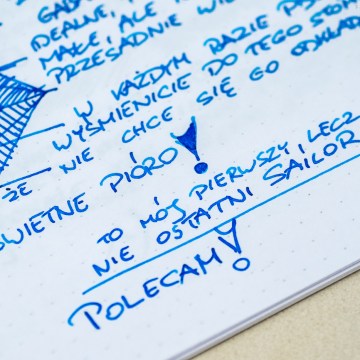 IDEALNE,
MAŁE, ALE
PRZESADNIE
W KAŻDYM RAZIE
WYŚMIENICIE DO TEGO
ŻE NIE CHCE SIĘ GO
ŚWIETNE PIÓRO!
TO MÓJ PIERWSZY, LECZ
NIE OSTATNI SAILOR
POLECAM!